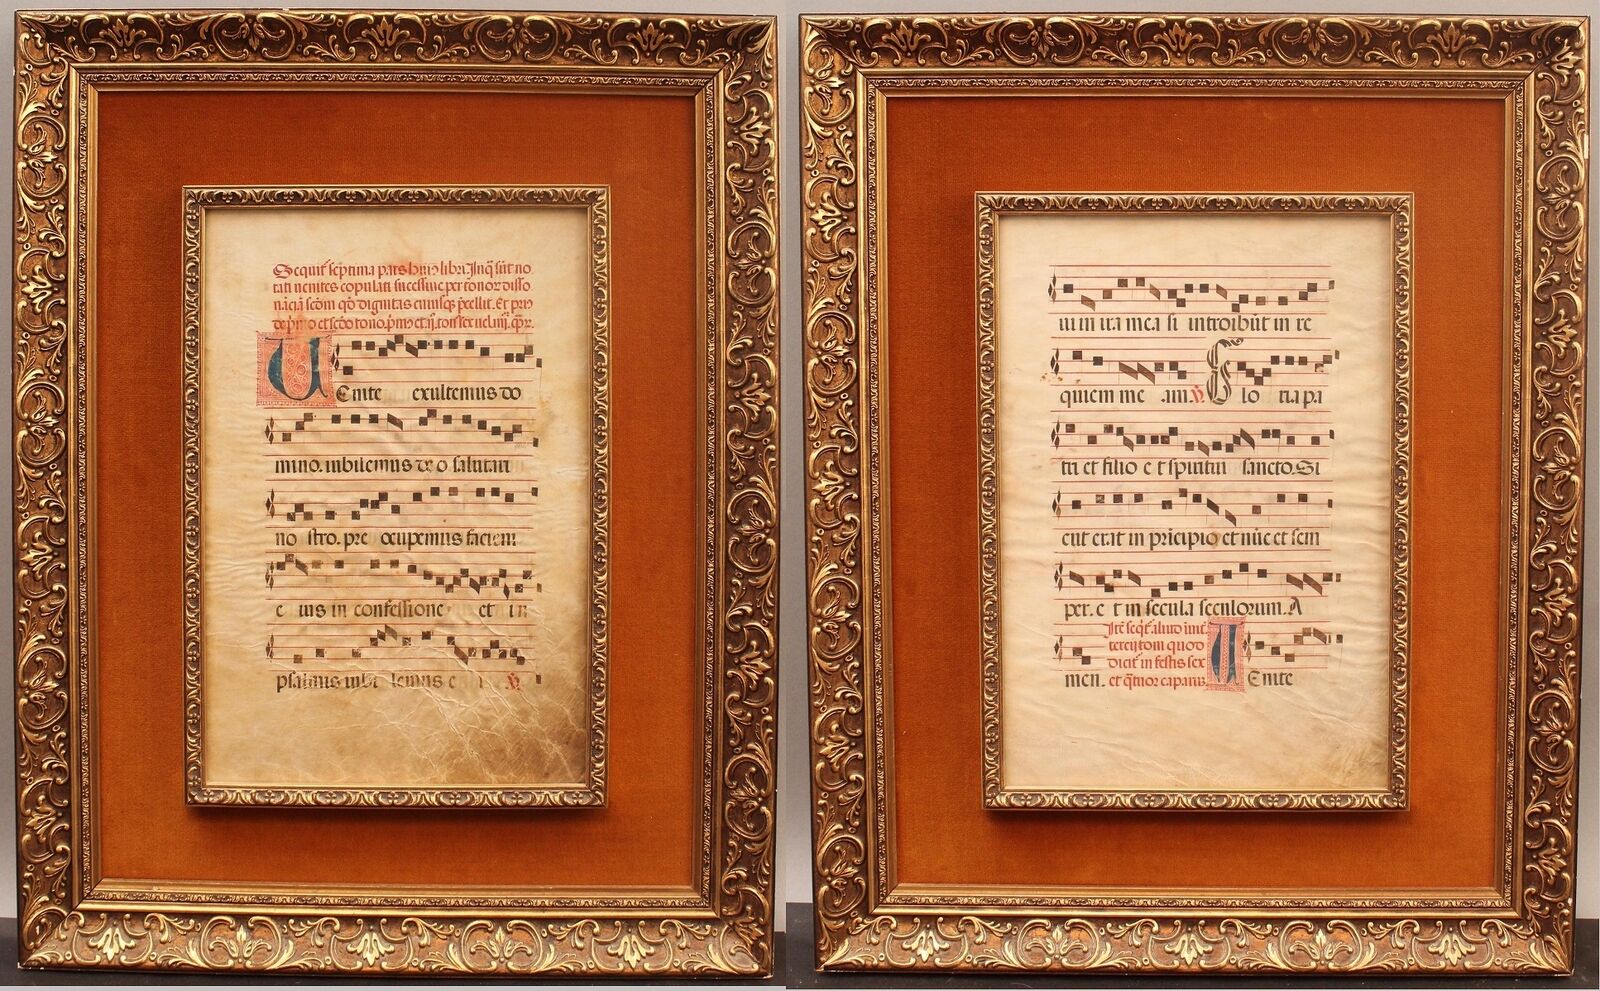 Sequit septima pars huius libri. Inq sūt no
tati uenites copulati successiue per tonor disso
nāciā scdm qd dignitas cuiusq prellit. Et prius
de primo et scdo tono.
U
Enite exultemus do
mino. iubilemus deo salutari
no stro. pre ocupemus faciem
e ius in confessione et in
psalmis iubi lemus e i. V.
iu in ira mea si introibūt in re
quiem me am. V. G lo ria pa
tri et filio e t spiritui sancto. Si
cut erat in prīcipio et nūc et sem
per. e t in secula seculorum. A
Itē seqt aliud inui
tercij tom quod
dicit in festis sex
men. et qtuor caparum. U Enite